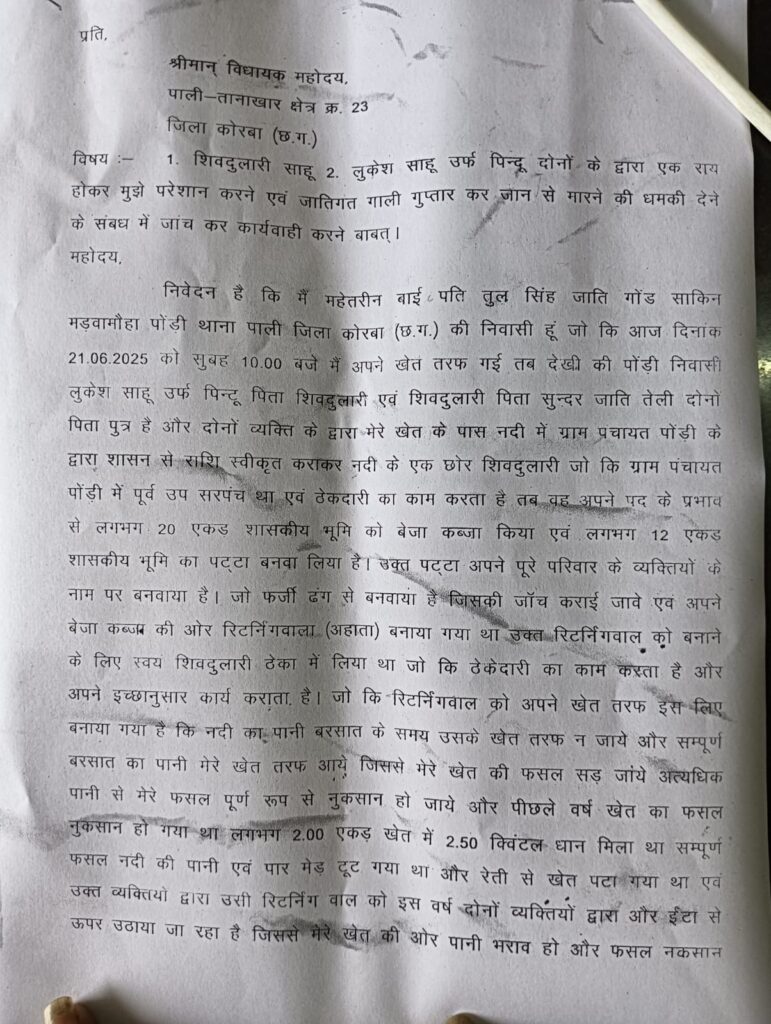 प्रति,
श्रीमान् विधायक महोदय,
पाली–तानाखार क्षेत्र क्र. 23
जिला कोरबा (छ.ग.)
विषय :– 1. शिवदुलारी साहू 2. लुकेश साहू उर्फ पिन्टू दोनों के द्वारा एक राय
होकर मुझे परेशान करने एवं जातिगत गाली गुप्तार कर जान से मारने की धमकी देने
के संबध में जांच कर कार्यवाही करने बाबत्।
महोदय,
निवेदन है कि मैं महेतरीन बाई पति तुल सिंह जाति गोंड साकिन
मड़वामौहा पोंड़ी थाना पाली जिला कोरबा (छ.ग.) की निवासी हूं जो कि आज दिनांक
21.06.2025 को सुबह 10.00 बजे मैं अपने खेत तरफ गई तब देखी की पोंड़ी निवासी
लुकेश साहू उर्फ पिन्टू पिता शिवदुलारी एवं शिवदुलारी पिता सुन्दर जाति तेली दोनों
पिता पुत्र है और दोनों व्यक्ति के द्वारा मेरे खेत के पास नदी में ग्राम पंचायत पोंड़ी के
द्वारा शासन से राशि स्वीकृत कराकर नदी के एक छोर शिवदुलारी जो कि ग्राम पंचायत
पोंड़ी में पूर्व उप सरपंच था एवं ठेकदारी का काम करता है तब वह अपने पद के प्रभाव
से लगभग 20 एकड शासकीय भूमि को बेजा कब्जा किया एवं लगभग 12 एकड
शासकीय भूमि का पट्टा बनवा लिया है। उक्त पट्टा अपने पूरे परिवार के व्यक्तियों के
नाम पर बनवाया है। जो फर्जी ढंग से बनवाया है जिसकी जॉच कराई जावे एवं अपने
बेजा कब्जा की ओर रिटर्निंगवाला (अहाता) बनाया गया था उक्त रिटर्निंगवाल को बनाने
के लिए स्वय शिवदुलारी ठेका में लिया था जो कि ठेकेदारी का काम करता है और
अपने इच्छानुसार कार्य कराता है। जो कि रिटर्निंगवाल को अपने खेत तरफ इस लिए
बनाया गया है कि नदी का पानी बरसात के समय उसके खेत तरफ न जाये और सम्पूर्ण
बरसात का पानी मेरे खेत तरफ आये जिससे मेरे खेत की फसल सड़ जांये अत्यधिक
पानी से मेरे फसल पूर्ण रूप से नुकसान हो जाये और पीछले वर्ष खेत का फसल
नुकसान हो गया था लगभग 2.00 एकड़ खेत में 2.50 क्विंटल धान मिला था सम्पूर्ण
फसल नदी की पानी एवं पार मेड़ टूट गया था और रेती से खेत पटा गया था एवं
उक्त व्यक्तियों द्वारा उसी रिटर्निंग वाल को इस वर्ष दोनों व्यक्तियों द्वारा और ईंटा से
ऊपर उठाया जा रहा है जिससे मेरे खेत की ओर पानी भराव हो और फसल नकसान